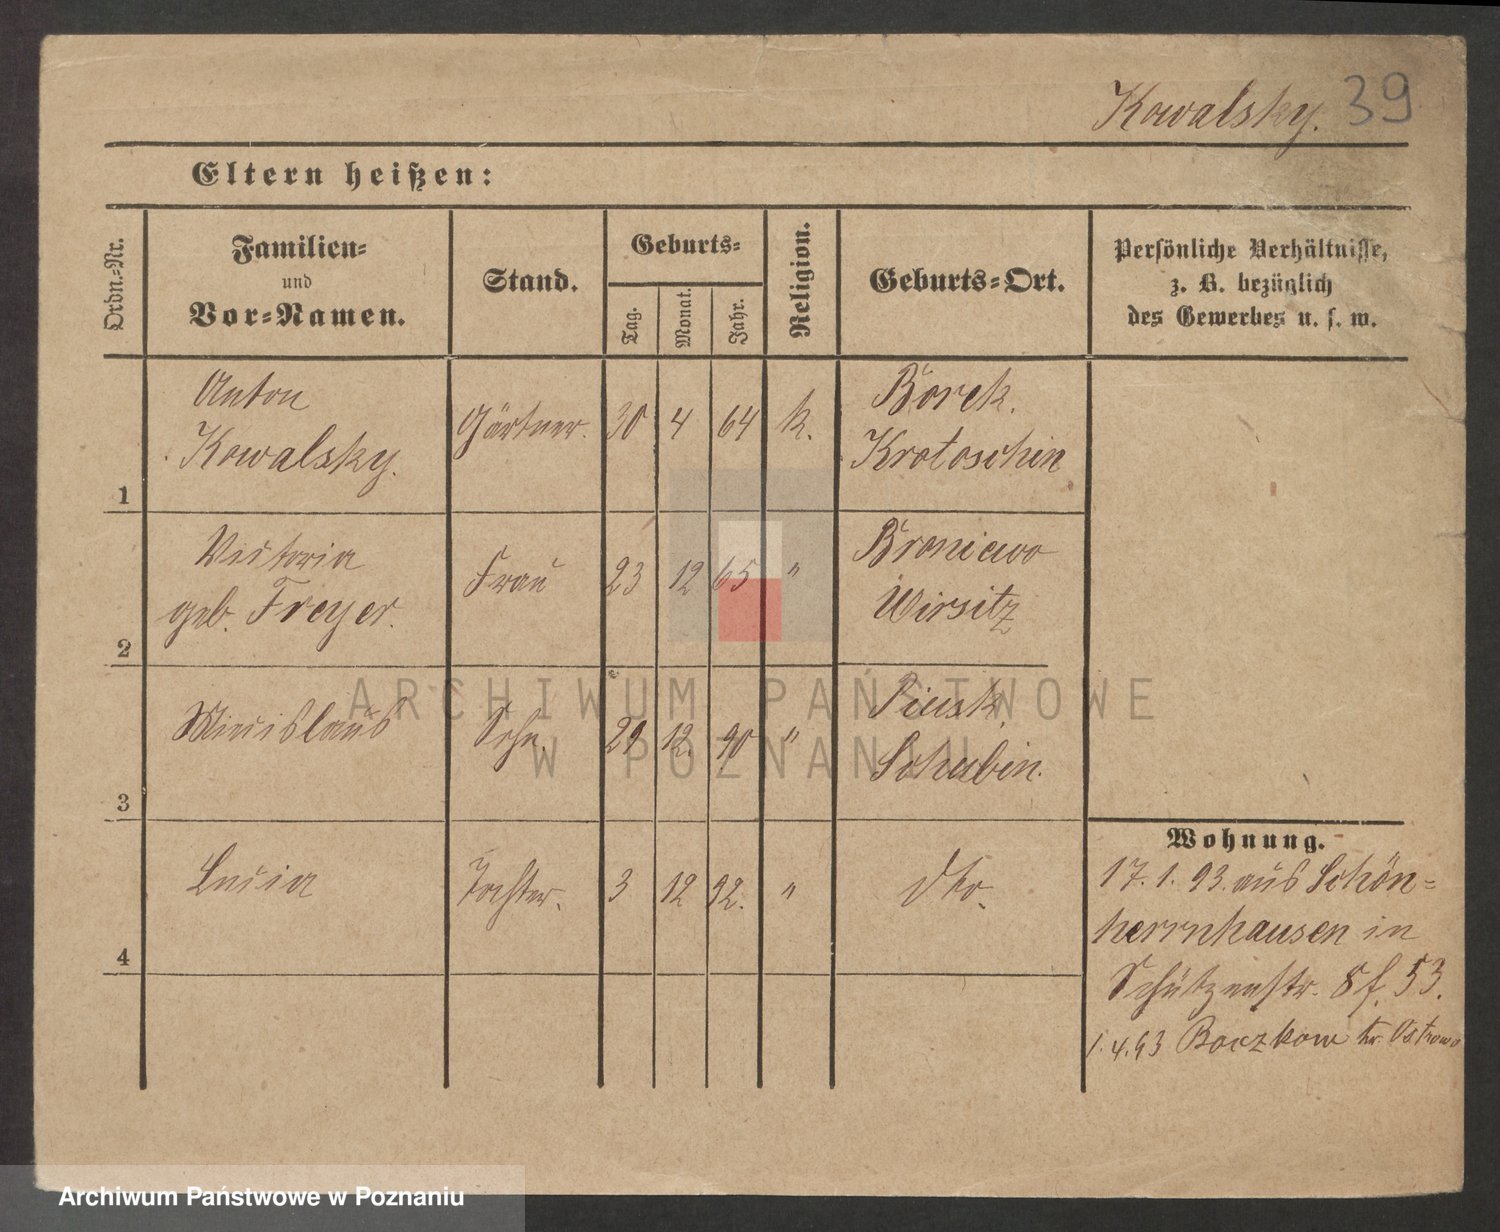 Kowalsky. 39
Eltern heißen:
Ordn.-Nr.
Familien-
und
Vor-Namen.
Stand.
Geburts-
Tag.
Monat.
Jahr.
Religion.
Geburts-Ort.
Persönliche Verhältnisse,
z. B. bezüglich
des Gewerbes u. s. w.
1
Anton
Kowalsky.
Gärtner.
30
4
64
k.
Borek.
Krotoschin
2
Victoria
geb. Freyer.
Frau
23
12
65
"
Broniewo
Wirsitz
3
Miecislaus
Sohn.
29
12.
90
"
Schubin.
4
Lucia
Tochter.
3
12
92.
"
dto.
Wohnung.
17. 1. 93. aus Schön-
herrnhausen in
Schützenstr. 8 f. 53.
1. 4. 93 Boczkow kr. Ostrowo
ARCHIWUM PAŃSTWOWE
W POZNANIU
Archiwum Państwowe w Poznaniu